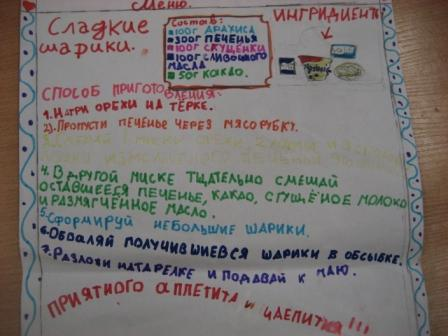 Меню.
Сладкие
шарики.
Состав:
100г арахиса
300г печенья
100г сгущенки
100г сливочного
масла
50г какао.
ингридиенты
Способ приготовления:
1. Натри орехи на тёрке.
2). Пропусти печенье через мясорубку.
4. В другой миске тщательно смешай
оставшееся печенье, какао, сгущёное молоко
и размягчённое масло.
5. Сформируй небольшие шарики.
6. Обваляй получившиевся шарики в обсыпке.
7. Разложи натарелке и подавай к чаю.
Приятного аппетита и